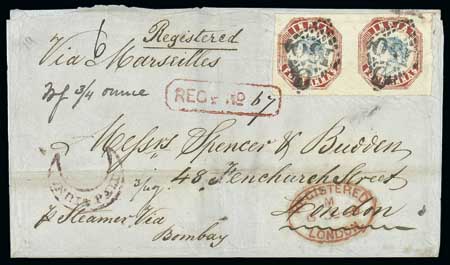 6
Registered
Via Marseilles
3/4 ounce
REGD. No 67
Messrs Spencer & Budden
48 Fenchurch Street
London
p Steamer Via
Bombay
INDIA PAID
REGISTERED
LONDON